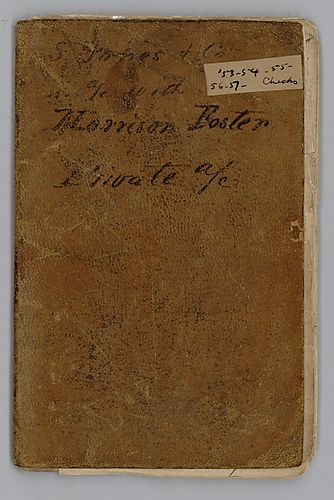 S Jones & Co
in a/c with
Morrison Foster
Private a/c
'53-54-55-
56-57- Checks